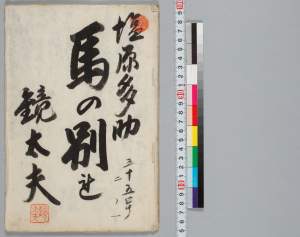 塩原多助
馬の別れ
三十五号
二ノ一
鏡太夫